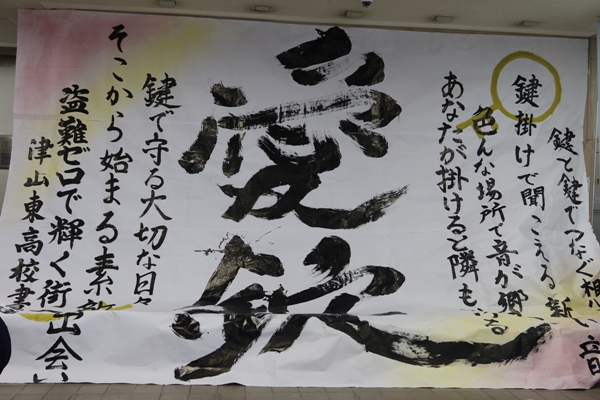 鍵と鍵でつなぐ想い
鍵掛けで聞こえる新しい音
色んな場所で音が響
あなたが掛けると隣も
愛錠
鍵で守る大切な日々
そこから始まる素敵
出会い
盗難ゼロで輝く街
津山東高校書